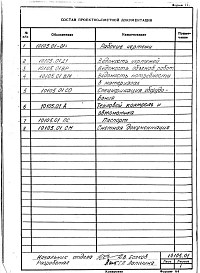 Форма 11
СОСТАВ ПРОЕКТНО-СМЕТНОЙ ДОКУМЕНТАЦИИ
№ п/п Обозначение Наименование Приме-чание
1 10105.01-01 Рабочие чертежи
2 10105.01.Д1 Ведомость чертежей
3 Ведомость объемов работ
4 10105.01.ВМ Ведомость потребности
в материалах
5 10105.01.СО Спецификация оборудо-
вания
6 10105.01.А Тепловой контроль и
автоматика
7 10105.01 ПС Паспорт
8 10105.01.СМ Сметная документация
Начальник отдела
Разработал
10105.01
Лист
Копировал
Формат